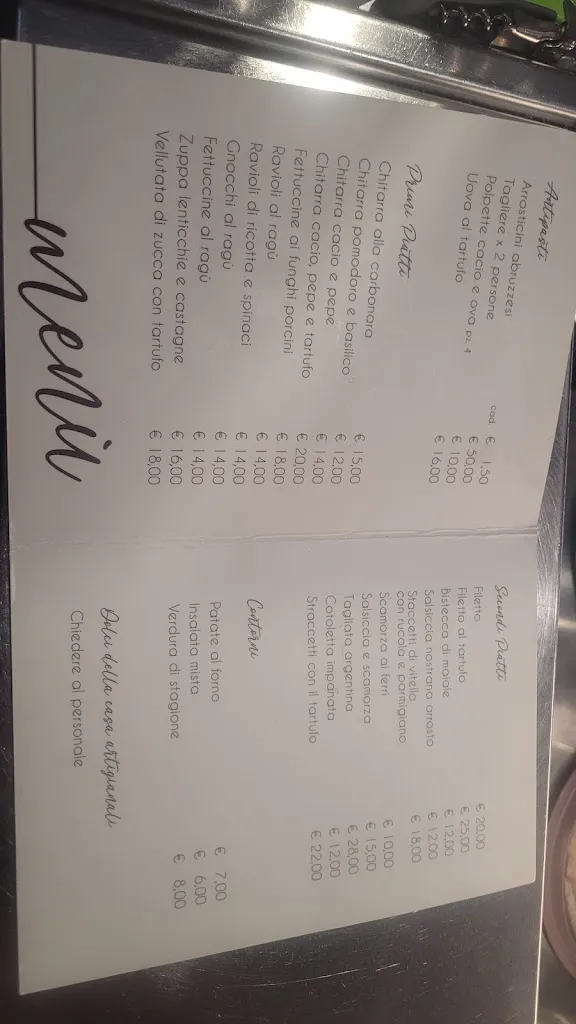 Antipasti
Arrosticini abruzzesi cad. € 1,50
Tagliere x 2 persone € 50,00
Polpette cacio e ova pz. 4 € 10,00
Uova al tartufo € 16,00
Primi Piatti
Chitarra alla carbonara € 15,00
Chitarra pomodoro e basilico € 12,00
Chitarra cacio e pepe € 14,00
Chitarra cacio, pepe e tartufo € 20,00
Fettuccine ai funghi porcini € 18,00
Ravioli al ragù € 14,00
Ravioli di ricotta e spinaci € 14,00
Gnocchi al ragù € 14,00
Fettuccine al ragù € 14,00
Zuppa lenticchie e castagne € 16,00
Vellutata di zucca con tartufo € 18,00
menù
Secondi Piatti
Filetto € 20,00
Filetto al tartufo € 25,00
Bistecca di maiale € 12,00
Salsiccia nostrana arrosto € 12,00
Staccetti di vitella
con rucola e parmigiano € 18,00
Scamorza ai ferri € 10,00
Salsiccia e scamorza € 15,00
Tagliata argentina € 28,00
Cotoletta impanata € 12,00
Straccetti con il tartufo € 22,00
Contorni
Patate al forno € 7,00
Insalata mista € 6,00
Verdura di stagione € 8,00
Dolci della casa artigianali
Chiedere al personale